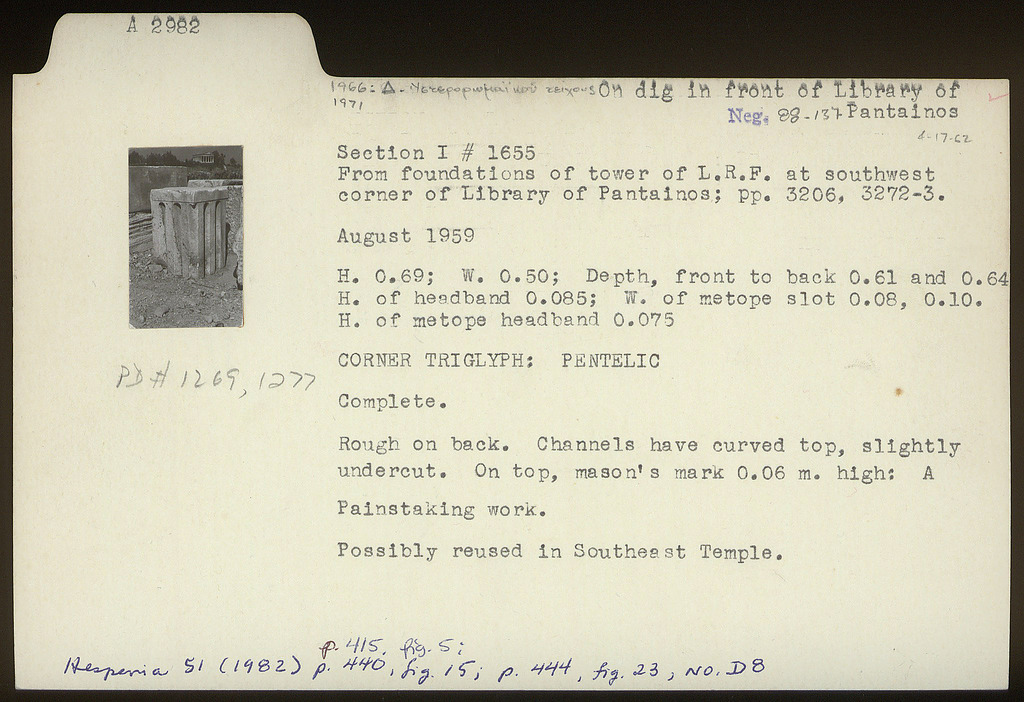 A 2982
1966: Δ. Υστερορωμαϊκού τείχους On dig in front of Library of
1971
Neg. 88-137 Pantainos
4-17-62
Section I # 1655
From foundations of tower of L.R.F. at southwest
corner of Library of Pantainos; pp. 3206, 3272-3.
August 1959
H. 0.69; W. 0.50; Depth, front to back 0.61 and 0.64
H. of headband 0.085; W. of metope slot 0.08, 0.10.
H. of metope headband 0.075
PD # 1269, 1277
CORNER TRIGLYPH: PENTELIC
Complete.
Rough on back. Channels have curved top, slightly
undercut. On top, mason's mark 0.06 m. high: A
Painstaking work.
Possibly reused in Southeast Temple.
p. 415, fig. 5;
Hesperia 51 (1982) p. 440, fig. 15; p. 444, fig. 23, NO. D8